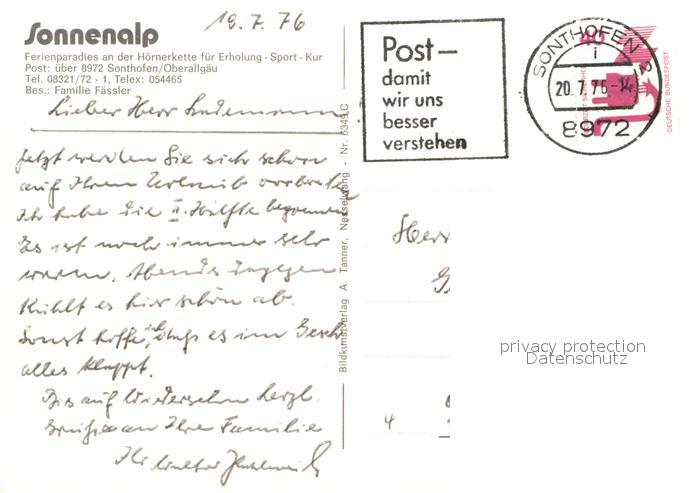 19.7.76
Sonnenalp
Ferienparadies an der Hörnerkette für Erholung - Sport - Kur
Post: über 8972 Sonthofen/Oberallgäu
Tel. 08321/72 - 1, Telex: 054465
Bes.: Familie Fässler
Lieber Herr
Jetzt werden Sie sich schon
auf Ihren Urlaub vorbereiten
Ich habe die II. Hälfte begonnen
Es ist noch immer sehr
warm. Abends dagegen
kühlt es hier schön ab.
Sonst hoffe ich, daß es im Gesch
alles klappt.
Bis auf Wiedersehn herzl.
Grüße an Ihre Familie
Ihr Walter
Bildkunstverlag A. Tanner, Nesselwang - Nr. 6349 C
Post—
damit
wir uns
besser
verstehen
SONTHOFEN 2
i
20.7.76-14
8972
40
DEUTSCHE BUNDESPOST
Herr
4
privacy protection
Datenschutz